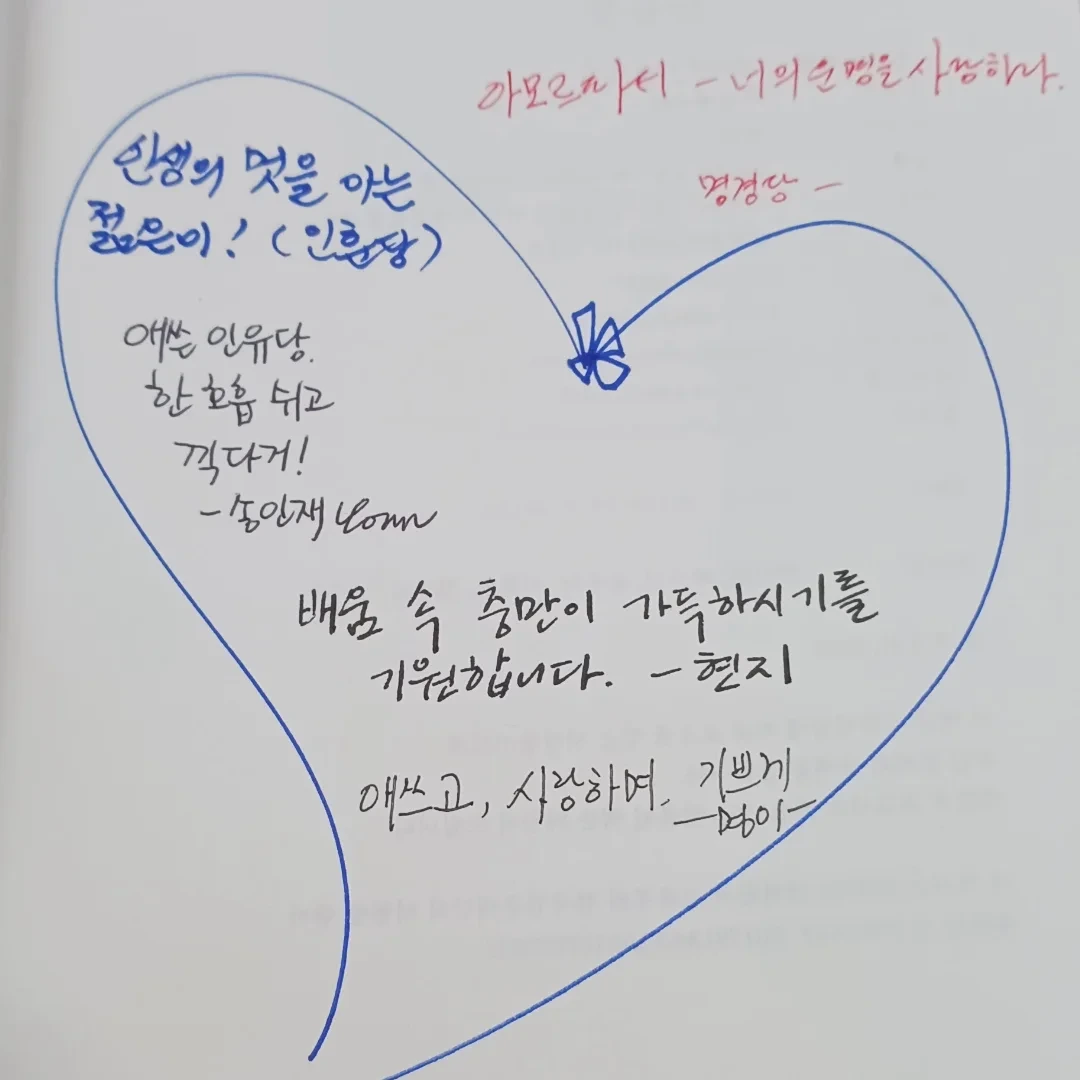 아모르파시 - 너의 운명을 사랑하라.
명경당 -
인생의 멋을 아는
젊은이! (인훈당)
애쓴 인유당.
한 호흡 쉬고
끽다거!
- 송인재
배움 속 충만이 가득하시기를
기원합니다. - 현지
애쓰고, 사랑하며, 기쁘게
- 명이 -